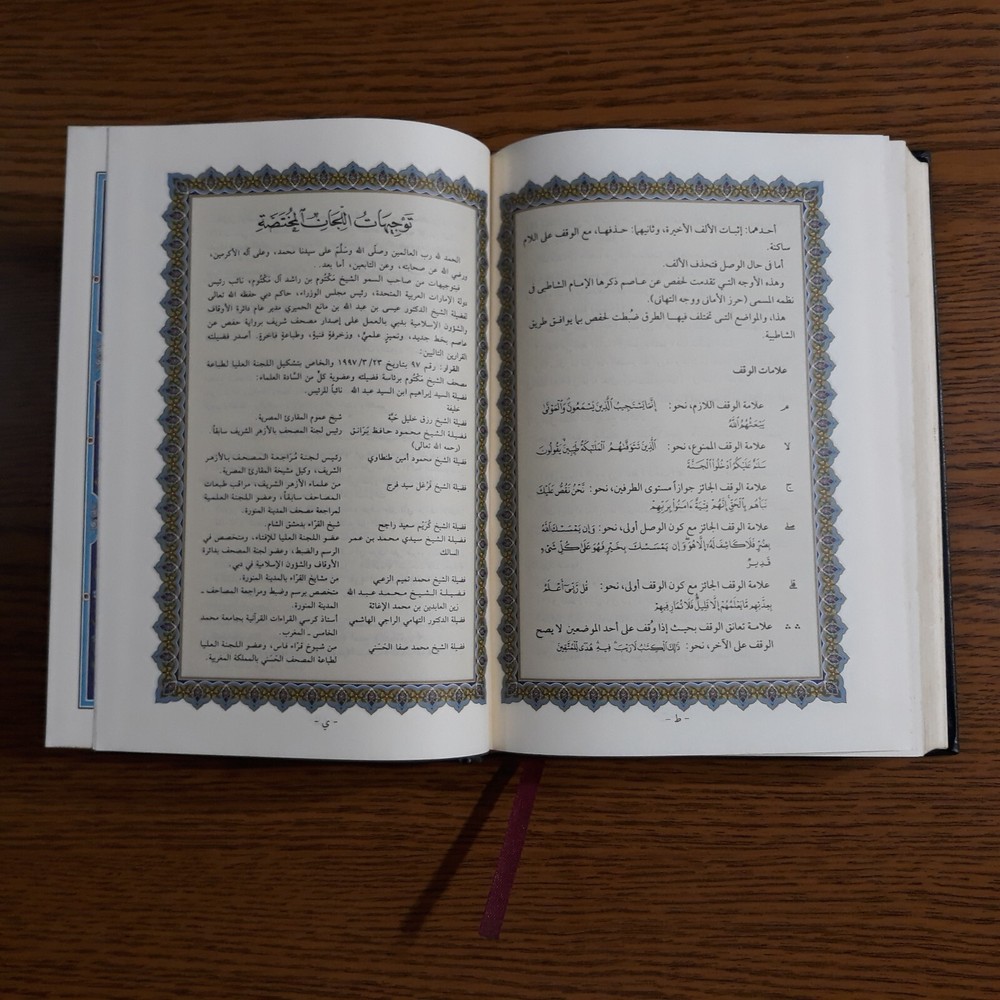 أحدهما: إثبات الألف الأخيرة، وثانيهما: حذفها، مع الوقف على اللام
ساكنة.
أما في حال الوصل فتحذف الألف.
وهذه الأوجه التي تقدمت لحفص عن عاصم ذكرها الإمام الشاطبي في
نظمه المسمى (حرز الأماني ووجه التهاني).
هذا، والمواضع التي تختلف فيها الطرق ضُبطت لحفص بما يوافق طريق
الشاطبية.
علامات الوقف
مـ علامة الوقف اللازم، نحو: إِنَّمَا يَسْتَجِيبُ ٱلَّذِينَ يَسْمَعُونَ وَٱلْمَوْتَىٰ
يَبْعَثُهُمُ ٱللَّهُ
لا علامة الوقف الممنوع، نحو: ٱلَّذِينَ تَتَوَفَّىٰهُمُ ٱلْمَلَٰٓئِكَةُ طَيِّبِينَ يَقُولُونَ
سَلَٰمٌ عَلَيْكُمُ ٱدْخُلُوا۟ ٱلْجَنَّةَ
ج علامة الوقف الجائز جوازاً مستوى الطرفين، نحو: نَّحْنُ نَقُصُّ عَلَيْكَ
نَبَأَهُم بِٱلْحَقِّ إِنَّهُمْ فِتْيَةٌ ءَامَنُوا۟ بِرَبِّهِمْ
صلے علامة الوقف الجائز مع كون الوصل أولى، نحو: وَإِن يَمْسَسْكَ ٱللَّهُ
بِضُرٍّ فَلَا كَاشِفَ لَهُۥٓ إِلَّا هُوَ وَإِن يَمْسَسْكَ بِخَيْرٍ فَهُوَ عَلَىٰ كُلِّ شَىْءٍ
قَدِيرٌ
قلے علامة الوقف الجائز مع كون الوقف أولى، نحو: قُل رَّبِّىٓ أَعْلَمُ
بِعِدَّتِهِم مَّا يَعْلَمُهُمْ إِلَّا قَلِيلٌ فَلَا تُمَارِ فِيهِمْ
∴ ∴ علامة تعانق الوقف بحيث إذا وُقف على أحد الموضعين لا يصح
الوقف على الآخر، نحو: ذَٰلِكَ ٱلْكِتَٰبُ لَا رَيْبَ فِيهِ هُدًى لِّلْمُتَّقِينَ
- ط -
تَوْجِيهَاتُ اللِّجَانِ المُخْتَصَّةِ
الحمد لله رب العالمين وصلّى الله وسَلّمَ على سيدنا محمد، وعلى آله الأكرمين،
ورضي الله عن صحابته، وعن التابعين، أما بعد..
فبتوجيهات من صاحب السمو الشيخ مَكْتُوم بن راشد آل مَكْتُوم، نائب رئيس
دولة الإمارات العربية المتحدة، رئيس مجلس الوزراء، حاكم دبي حفظه الله تعالى
لفضيلة الشيخ الدكتور عيسى بن عبد الله بن مانع الحميري مدير عام دائرة الأوقاف
والشؤون الإسلامية بدُبي بالعمل على إصدار مصحف شريف برواية حفص عن
عاصم بخط جديد، وتميزٍ علميٍّ، وزخرفةٍ فنيةٍ، وطباعةٍ فاخرةٍ. أصدر فضيلته
القرارين التاليين:
القرار: رقم ٩٧ بتاريخ ٢٣/ ٣/ ١٩٩٧ والخاص بتشكيل اللجنة العليا لطباعة
مصحف الشيخ مَكْتُوم برئاسة فضيلته وعضوية كلٍّ من السَّادة العلماء:
فضيلة السيد إبراهيم ابن السيد عبد الله نائباً للرئيس.
خليفة
فضيلة الشيخ رزق خليل حَبَّة شيخ عموم المقارئ المصرية.
فضيلة الشيخ محمود حافظ بَرَانق رئيس لجنة المصحف بالأزهر الشريف سابقاً
(رحمه الله تعالى)
فضيلة الشيخ محمود أمين طنطاوي رئيس لجنة مُرَاجعة المصحف بالأزهر
الشريف، وكيل مشيخة المقارئ المصرية.
فضيلة الشيخ فَرْغَل سيد فرج من علماء الأزهر الشريف، مراقب طبعات
المصاحف سابقاً، وعضو اللجنة العلمية
لمراجعة مصحف المدينة المنورة.
فضيلة الشيخ كُرَيِّم سعيد راجح شيخ القرَّاء بدمشق الشام.
فضيلة الشيخ سيدي محمد بن عمر عضو اللجنة العليا للإفتاء، ومتخصص في
السالك الرسم والضبط، وعضو لجنة المصحف بدائرة
الأوقاف والشؤون الإسلامية في دبي.
فضيلة الشيخ محمد تميم الزعبي من مشايخ القرَّاء بالمدينة المنورة.
فضيلة الشيخ محمد عبد الله متخصص برسم وضبط ومراجعة المصاحف ـ
زين العابدين بن محمد الإغاثة المدينة المنورة.
فضيلة الدكتور التهامي الراجي الهاشمي أستاذ كرسي القراءات القرآنية بجامعة محمد
الخامس ـ المغرب.
فضيلة الشيخ محمد صفا الحَسَني من شيوخ قرَّاء فاس، وعضو اللجنة العليا
لطباعة المصحف الحَسَني بالمملكة المغربية.
- ي -